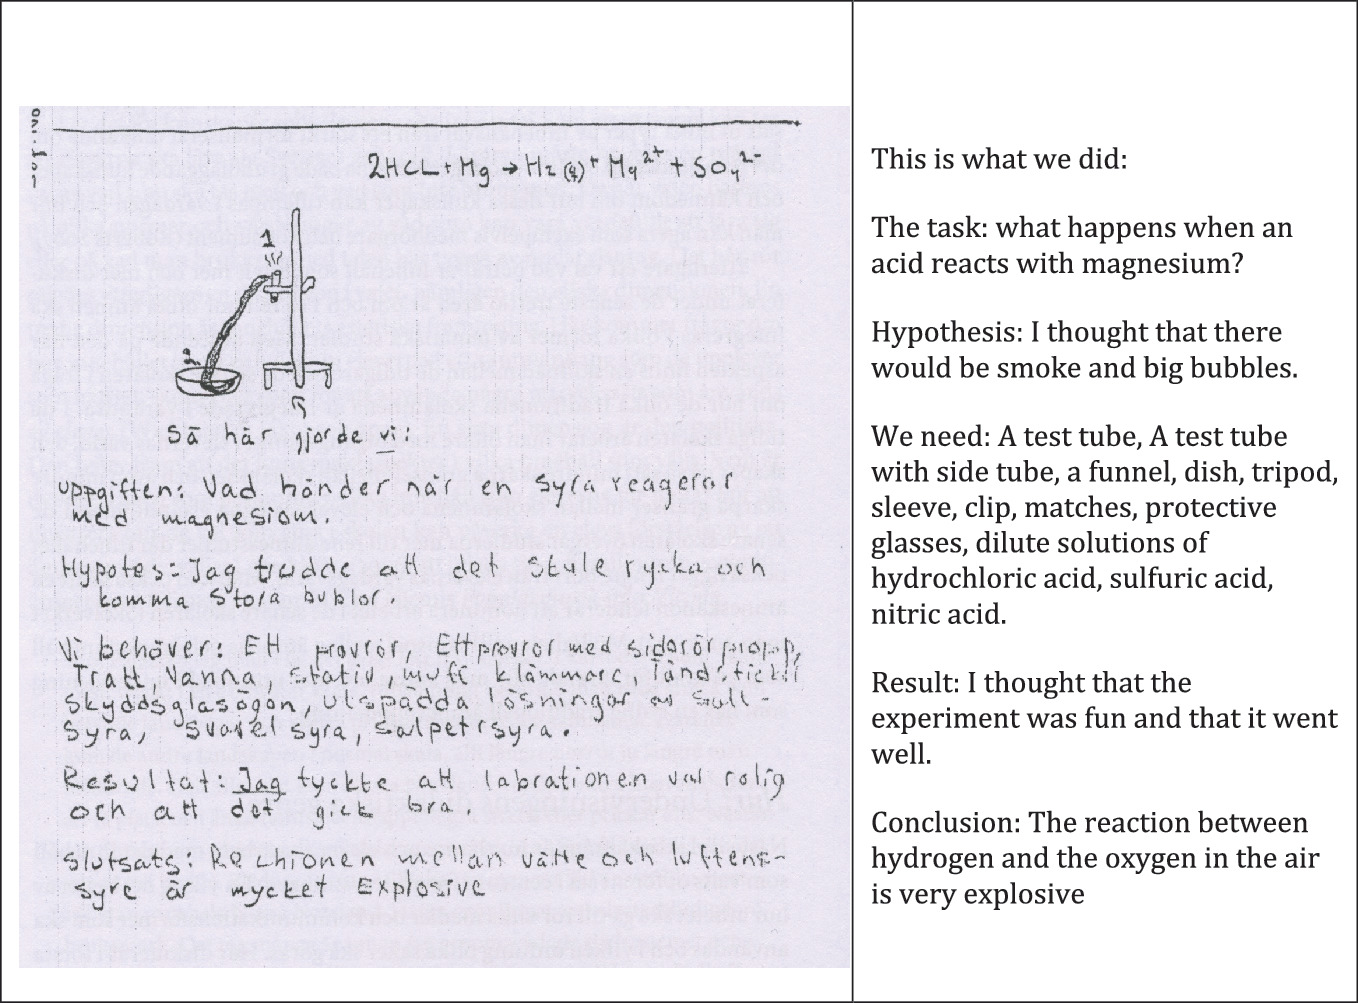 2HCL+Mg → H2(g)+ Mg2+ + SO42-
1
2
Så här gjorde vi:
uppgiften: Vad händer när en syra reagerar
med magnesiom.
Hypotes: Jag trodde att det skule rycka och
komm stora bublor
Vi behöver: Ett provrör, Ett provrör med sidorörpropp,
Tratt, Vanna, stativ, muff klämmare, tändstickor
skyddsglasögon utspädda lösningar av salt-
syra, svavel syra, salpetrsyra.
Resultat: Jag tyckte att labrationen val rolig
och att det gick bra.
Slutsats: Re chionen mellan väte och luftens-
syre är mycket Explosive
This is what we did:
The task: what happens when an
acid reacts with magnesium?
Hypothesis: I thought that there
would be smoke and big bubbles.
We need: A test tube, A test tube
with side tube, a funnel, dish, tripod,
sleeve, clip, matches, protective
glasses, dilute solutions of
hydrochloric acid, sulfuric acid,
nitric acid.
Result: I thought that the
experiment was fun and that it went
well.
Conclusion: The reaction between
hydrogen and the oxygen in the air
is very explosive